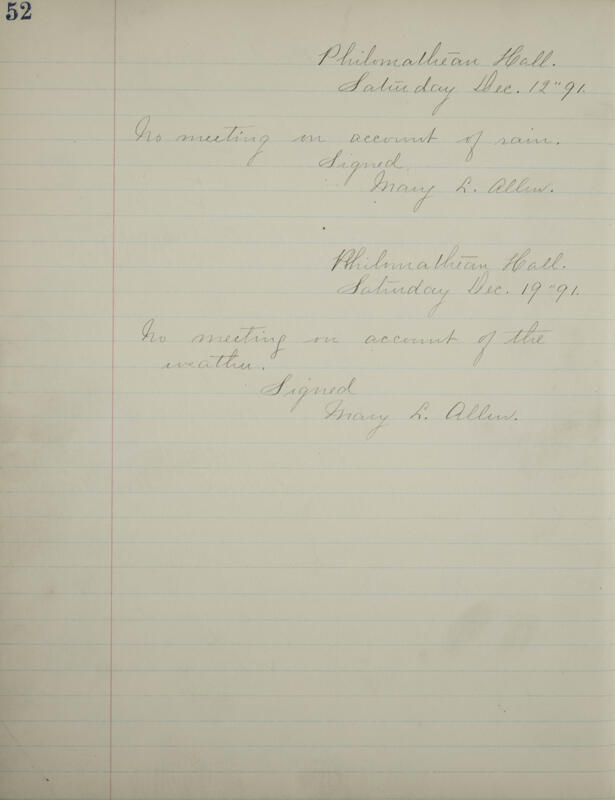 52
Philomathean Hall.
Saturday Dec. 12" 91.
No meeting on account of rain.
Signed
Mary L. Allen.
Philomathean Hall.
Saturday Dec. 19" 91.
No meeting on account of the
weather.
Signed
Mary L. Allen.